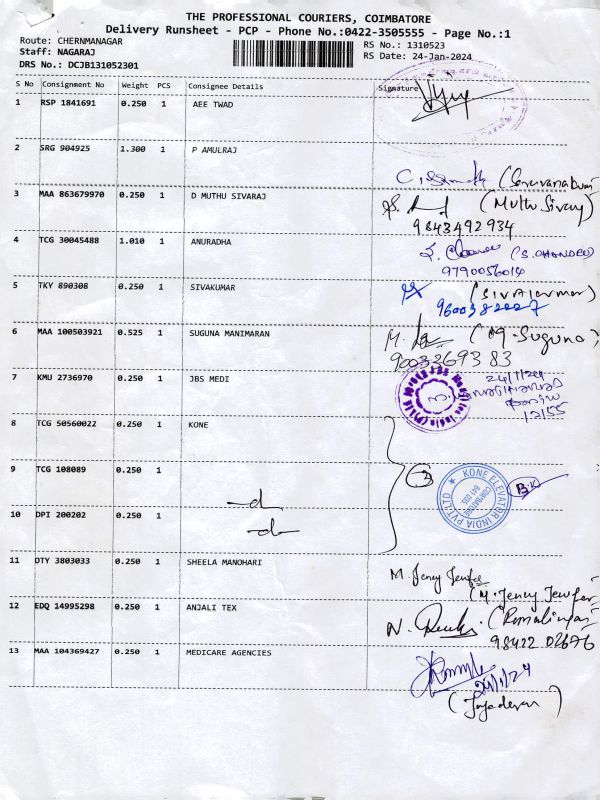 THE PROFESSIONAL COURIERS, COIMBATORE
Delivery Runsheet - PCP - Phone No.:0422-3505555 - Page No.:1
Route: CHERNMANAGAR
Staff: NAGARAJ
DRS No.: DCJB131052301
RS No.: 1310523
RS Date: 24-Jan-2024
S No Consignment No Weight PCS Consignee Details Signature
1 RSP 1841691 0.250 1 AEE TWAD
2 SRG 904925 1.300 1 P AMULRAJ
(Saravanakumar
3 MAA 863679970 0.250 1 D MUTHU SIVARAJ
(Muthu Sivaraj)
9843492934
4 TCG 30045488 1.010 1 ANURADHA
9790056014
5 TKY 890308 0.250 1 SIVAKUMAR
(SIVAKUMAR)
9600382227
6 MAA 100503921 0.525 1 SUGUNA MANIMARAN
(M. Suguna)
9003269383
7 KMU 2736970 0.250 1 JBS MEDI
24/1/24
8 TCG 50560022 0.250 1 KONE
9 TCG 108089 0.250 1
3
KONE ELEVATOR INDIA PVT.LTD
COIMBATORE
641 035
B.K
10 DPI 200202 0.250 1
11 OTY 3803033 0.250 1 SHEELA MANOHARI
12 EDQ 14995298 0.250 1 ANJALI TEX
98422 02676
13 MAA 104369427 0.250 1 MEDICARE AGENCIES
24/1/24
(Jayadevan)